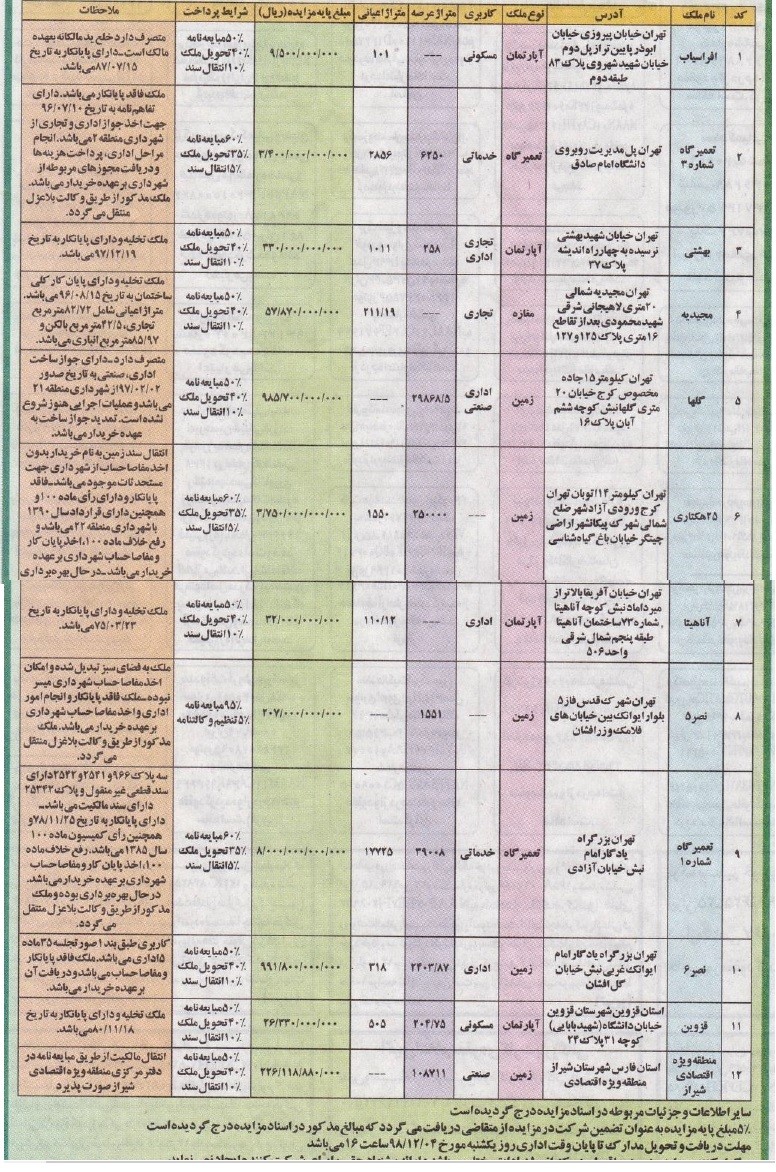 کد نام ملک آدرس نوع ملک کاربری متراژ عرصه متراژ اعیانی مبلغ پایه مزایده (ریال) شرایط پرداخت ملاحظات
۱ افراسیاب
تهران خیابان پیروزی خیابان
ابوذر پایین تر از پل دوم
خیابان شهید شهروی پلاک ۸۳
طبقه دوم
آپارتمان مسکونی ---- ۱۰۱ ۹/۵۰۰/۰۰۰/۰۰۰
۵۰٪ مبایعه نامه
۴۰٪ تحویل ملک
۱۰٪ انتقال سند
متصرف دارد خلع ید مالکانه بعهده
مالک است ــ دارای پایانکار به تاریخ
۸۷/۰۷/۱۵ می‌باشد.
۲ تعمیرگاه
شماره ۳
تهران پل مدیریت روبروی
دانشگاه امام صادق
تعمیرگاه خدماتی ۶۲۵۰ ۲۸۵۶ ۳/۴۰۰/۰۰۰/۰۰۰/۰۰۰
۶۰٪ مبایعه نامه
۳۵٪ تحویل ملک
۵٪ انتقال سند
ملک فاقد پایانکار می‌باشد. دارای
تفاهم نامه به تاریخ ۹۶/۰۷/۱۰
جهت اخذ جواز اداری و تجاری از
شهرداری منطقه ۲ می‌باشد. انجام
مراحل اداری، پرداخت هزینه‌ها
و دریافت مجوزهای مربوطه از
شهرداری بر عهده خریدار می‌باشد.
ملک مذکور از طریق وکالت بلاعزل
منتقل می گردد.
۳ بهشتی
تهران خیابان شهید بهشتی
نرسیده به چهارراه اندیشه
پلاک ۳۷
آپارتمان تجاری
اداری
۲۵۸ ۱۰۱۱ ۳۳۰/۰۰۰/۰۰۰/۰۰۰
۵۰٪ مبایعه نامه
۴۰٪ تحویل ملک
۱۰٪ انتقال سند
ملک تخلیه و دارای پایانکار به تاریخ
۹۷/۱۲/۱۹ می‌باشد.
۴ مجیدیه
تهران مجیدیه شمالی
۲۰ متری لاهیجانی شرقی
شهید محمودی بعد از تقاطع
۱۶ متری پلاک ۱۲۵ و ۱۲۷
مغازه تجاری ---- ۲۱۱/۱۹ ۵۷/۸۷۰/۰۰۰/۰۰۰
۵۰٪ مبایعه نامه
۴۰٪ تحویل ملک
۱۰٪ انتقال سند
ملک تخلیه و دارای پایان کار کلی
ساختمان به تاریخ ۹۶/۰۸/۱۵ می‌باشد.
متراژ اعیانی شامل ۸۲/۷۲ مترمربع
تجاری، ۴۲/۵ مترمربع بالکن و
۸۵/۹۷ مترمربع انباری می‌باشد.
۵ گلها
تهران کیلومتر ۱۵ جاده
مخصوص کرج خیابان ۲۰
متری گلها نبش کوچه ششم
آبان پلاک ۱۶
زمین اداری
صنعتی
۲۹۸۶۸/۵ ---- ۹۸۵/۷۰۰/۰۰۰/۰۰۰
۵۰٪ مبایعه نامه
۴۰٪ تحویل ملک
۱۰٪ انتقال سند
متصرف دارد ــ دارای جواز ساخت
اداری، صنعتی به تاریخ صدور
۹۷/۰۲/۰۲ از شهرداری منطقه ۲۱
می‌باشد و عملیات اجرایی هنوز شروع
نشده است. تمدید جواز ساخت به
عهده خریدار می‌باشد.
۶ ۲۵ هکتاری
تهران کیلومتر ۱۴ اتوبان تهران
کرج ورودی آزادشهر ضلع
شمالی شهرک پیکانشهر اراضی
چیتگر خیابان باغ گیاه شناسی
زمین ---- ۲۵۰۰۰۰ ۱۵۵۰ ۳/۷۵۰/۰۰۰/۰۰۰/۰۰۰
۶۰٪ مبایعه نامه
۳۵٪ تحویل ملک
۵٪ انتقال سند
انتقال سند زمین به نام خریدار بدون
اخذ مفاصا حساب از شهرداری جهت
مستحدثات موجود می‌باشد ــ فاقد
پایانکار و دارای رأی ماده ۱۰۰ و
همچنین دارای قرارداد سال ۱۳۹۰
با شهرداری منطقه ۲۲ می‌باشد و
رفع خلاف ماده ۱۰۰، اخذ پایان کار
و مفاصا حساب شهرداری بر عهده
خریدار می‌باشد ــ در حال بهره برداری
۷ آناهیتا
تهران خیابان آفریقا بالاتر از
میرداماد نبش کوچه آناهیتا
, شماره ۷۳ ساختمان آناهیتا
طبقه پنجم شمال شرقی
واحد ۵۰۶
آپارتمان اداری ---- ۱۱۰/۱۲ ۳۲/۰۰۰/۰۰۰/۰۰۰
۵۰٪ مبایعه نامه
۴۰٪ تحویل ملک
۱۰٪ انتقال سند
ملک تخلیه و دارای پایانکار به تاریخ
۷۵/۰۳/۲۳ می‌باشد.
۸ نصر ۵
تهران شهرک قدس فاز ۵
بلوار ایوانک بین خیابان های
فلامک و زرافشان
زمین ---- ۱۵۵۱ ---- ۲۰۷/۰۰۰/۰۰۰/۰۰۰
۹۵٪ مبایعه نامه
۵٪ تنظیم وکالتنامه
ملک به فضای سبز تبدیل شده و امکان
اخذ مفاصا حساب شهرداری میسر
نبوده ــ ملک فاقد پایانکار و انجام امور
اداری و اخذ مفاصا حساب شهرداری
بر عهده خریدار می‌باشد. ملک
مذکور از طریق وکالت بلاعزل منتقل
می گردد.
۹ تعمیرگاه
شماره ۱
تهران بزرگراه
یادگار امام
نبش خیابان آزادی
تعمیرگاه خدماتی ۳۹۰۰۸ ۱۷۷۲۵ ۸/۰۰۰/۰۰۰/۰۰۰/۰۰۰
۶۰٪ مبایعه نامه
۳۵٪ تحویل ملک
۵٪ انتقال سند
سه پلاک ۹۶۶ و ۲۵۲۱ و ۲۵۴۲ دارای
سند قطعی غیر منقول و پلاک ۲۵۳۴۲
دارای سند مالکیت می‌باشد ــ
دارای پایانکار به تاریخ ۷۸/۱۱/۲۵ و
همچنین رأی کمیسیون ماده ۱۰۰
سال ۱۳۸۵ می‌باشد. رفع خلاف ماده
۱۰۰، اخذ پایان کار و مفاصا حساب
شهرداری بر عهده خریدار می‌باشد.
در حال بهره برداری بوده و ملک
مذکور از طریق وکالت بلاعزل منتقل
می گردد.
۱۰ نصر ۶
تهران بزرگراه یادگار امام
ایوانک غربی نبش خیابان
گل افشان
زمین اداری ۲۴۰۳/۸۷ ۳۱۸ ۹۹۱/۸۰۰/۰۰۰/۰۰۰
۵۰٪ مبایعه نامه
۴۰٪ تحویل ملک
۱۰٪ انتقال سند
کاربری طبق بند ۱ صورتجلسه ۳۵ ماده
۵ اداری می‌باشد. ملک فاقد پایانکار
و مفاصا حساب می‌باشد و دریافت آن
بر عهده خریدار می‌باشد.
۱۱ قزوین
استان قزوین شهرستان قزوین
خیابان دانشگاه (شهید بابایی)
کوچه ۳۱ پلاک ۲۴
آپارتمان مسکونی ۲۰۴/۷۵ ۵۰۵ ۲۶/۳۳۰/۰۰۰/۰۰۰
۵۰٪ مبایعه نامه
۴۰٪ تحویل ملک
۱۰٪ انتقال سند
ملک تخلیه و دارای پایانکار به تاریخ
۸۰/۱۱/۱۸ می‌باشد.
۱۲ منطقه ویژه
اقتصادی
شیراز
استان فارس شهرستان شیراز
منطقه ویژه اقتصادی
زمین صنعتی ۱۰۸۷۱۱ ---- ۲۲۶/۱۱۸/۸۸۰/۰۰۰
۵۰٪ مبایعه نامه
۴۰٪ تحویل ملک
۱۰٪ انتقال سند
انتقال مالکیت از طریق مبایعه نامه در
دفتر مرکزی منطقه ویژه اقتصادی
شیراز صورت پذیرد
سایر اطلاعات و جزئیات مربوطه در اسناد مزایده درج گردیده است
۵٪ مبلغ پایه مزایده به عنوان تضمین شرکت در مزایده از متقاضی دریافت می گردد که مبالغ مذکور در اسناد مزایده درج گردیده است
مهلت دریافت و تحویل مدارک تا پایان وقت اداری روز یکشنبه مورخ ۹۸/۱۲/۰۴ ساعت ۱۶ می‌باشد